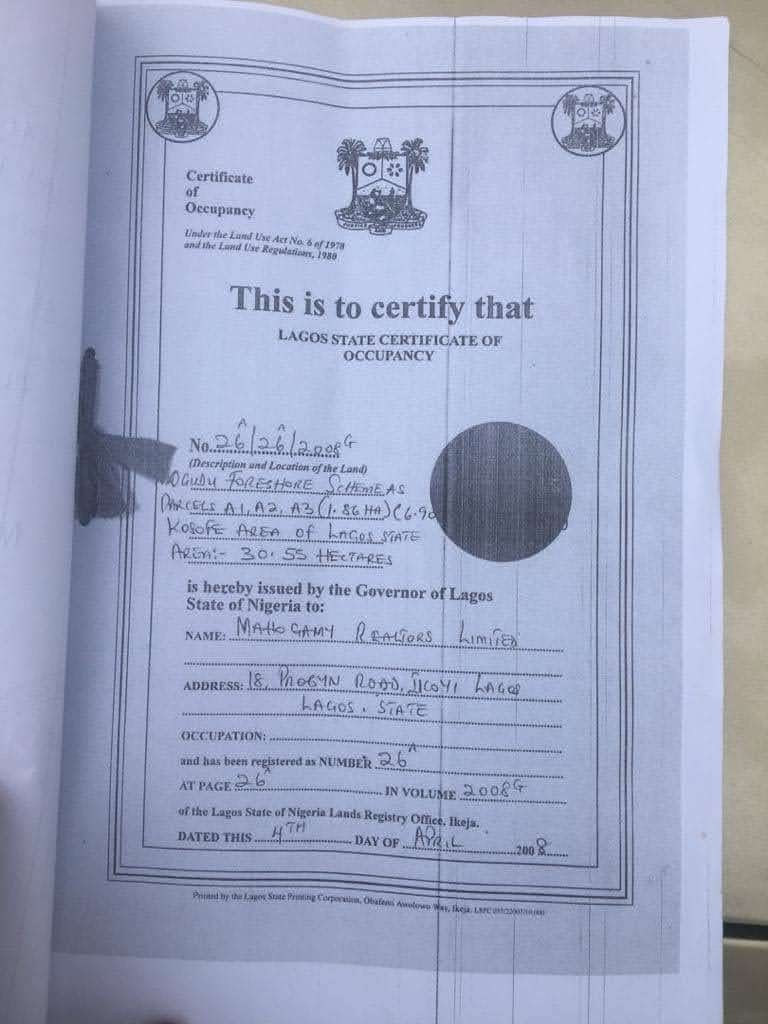 Certificate
of
Occupancy
Under the Land Use Act No. 6 of 1978
and the Land Use Regulations, 1980
This is to certify that
LAGOS STATE CERTIFICATE OF
OCCUPANCY
No. 26A/26A/2008G
(Description and Location of the Land)
OGUDU FORESHORE SCHEME AS
PARCELS A1, A2, A3 (1.86 HA) (6.90
KOSOFE AREA OF LAGOS STATE
AREA:- 30.55 HECTARES
is hereby issued by the Governor of Lagos
State of Nigeria to:
NAME: MAHOGAMY REALTORS LIMITED
ADDRESS: 18, PROBYN ROAD, IKOYI LAGOS
LAGOS. STATE
OCCUPATION:
and has been registered as NUMBER 26A
AT PAGE 26A IN VOLUME 2008G
of the Lagos State of Nigeria Lands Registry Office, Ikeja.
DATED THIS 4TH DAY OF APRIL 2008
Printed by the Lagos State Printing Corporation, Obafemi Awolowo Way, Ikeja.